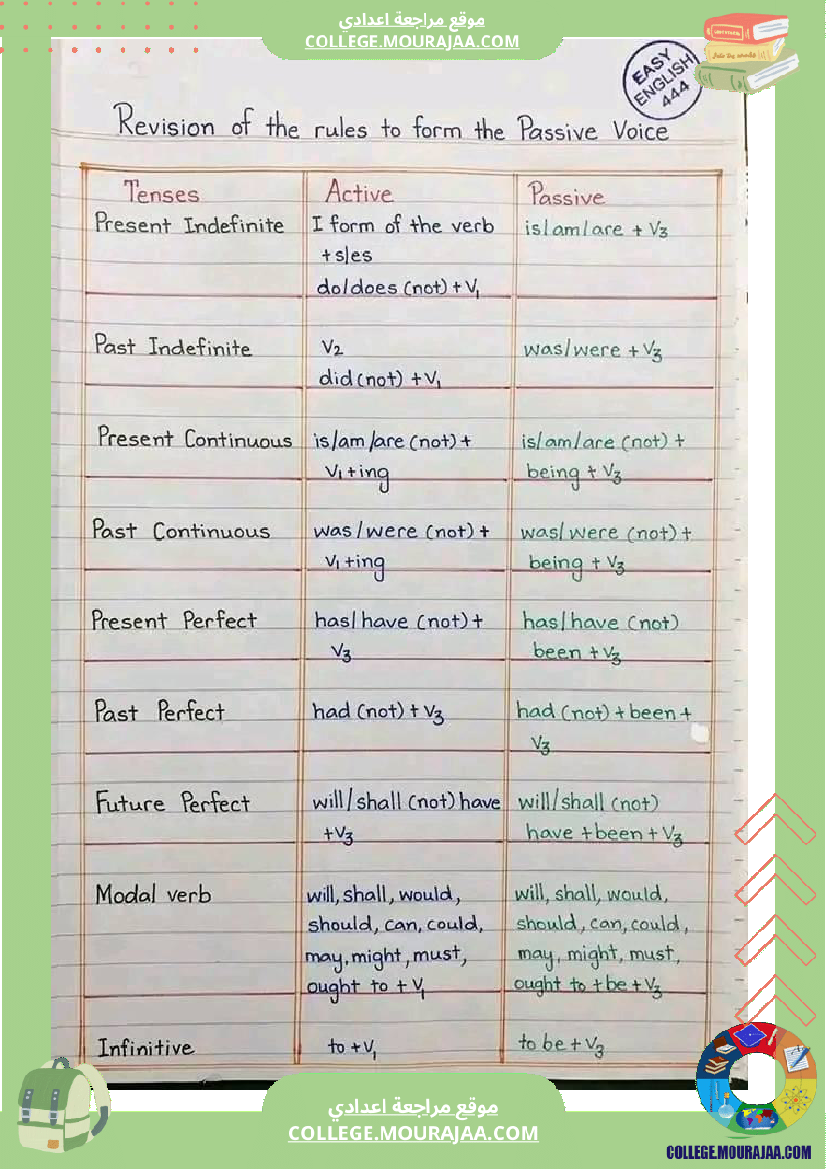 موقع مراجعة اعدادي
COLLEGE.MOURAJAA.COM
EASY
ENGLISH
444
Revision of the rules to form the Passive Voice
Tenses Active Passive
Present Indefinite I form of the verb is/am/are + V3
+s/es
do/does (not) + V1
Past Indefinite V2 was/were + V3
did (not) + V1
Present Continuous is/am/are (not) + is/am/are (not) +
V1+ing being + V3
Past Continuous was/were (not) + was/were (not) +
V1+ing being + V3
Present Perfect has/have (not) + has/have (not)
V3 been + V3
Past Perfect had (not) + V3 had (not) + been +
V3
Future Perfect will/shall (not) have will/shall (not)
+V3 have + been + V3
Modal verb will, shall, would, will, shall, would,
should, can, could, should, can, could,
may, might, must, may, might, must,
ought to + V1 ought to + be + V3
Infinitive to + V1 to be + V3
موقع مراجعة اعدادي
COLLEGE.MOURAJAA.COM
COLLEGE.MOURAJAA.COM